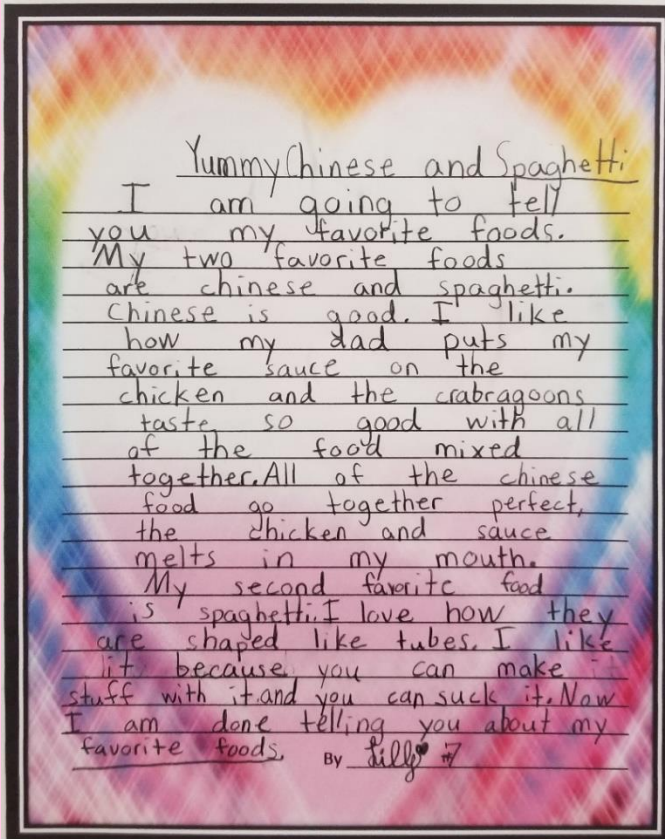 Yummy Chinese and Spaghetti
I am going to tell
you my favorite foods.
My two favorite foods
are chinese and spaghetti.
Chinese is good. I like
how my dad puts my
favorite sauce on the
chicken and the crabragoons
taste so good with all
of the food mixed
together. All of the chinese
food go together perfect,
the chicken and sauce
melts in my mouth.
My second favorite food
is spaghetti. I love how they
are shaped like tubes. I like
it because you can make it
stuff with it. and you can suck it. Now
I am done telling you about my
favorite foods. By Lilly #7